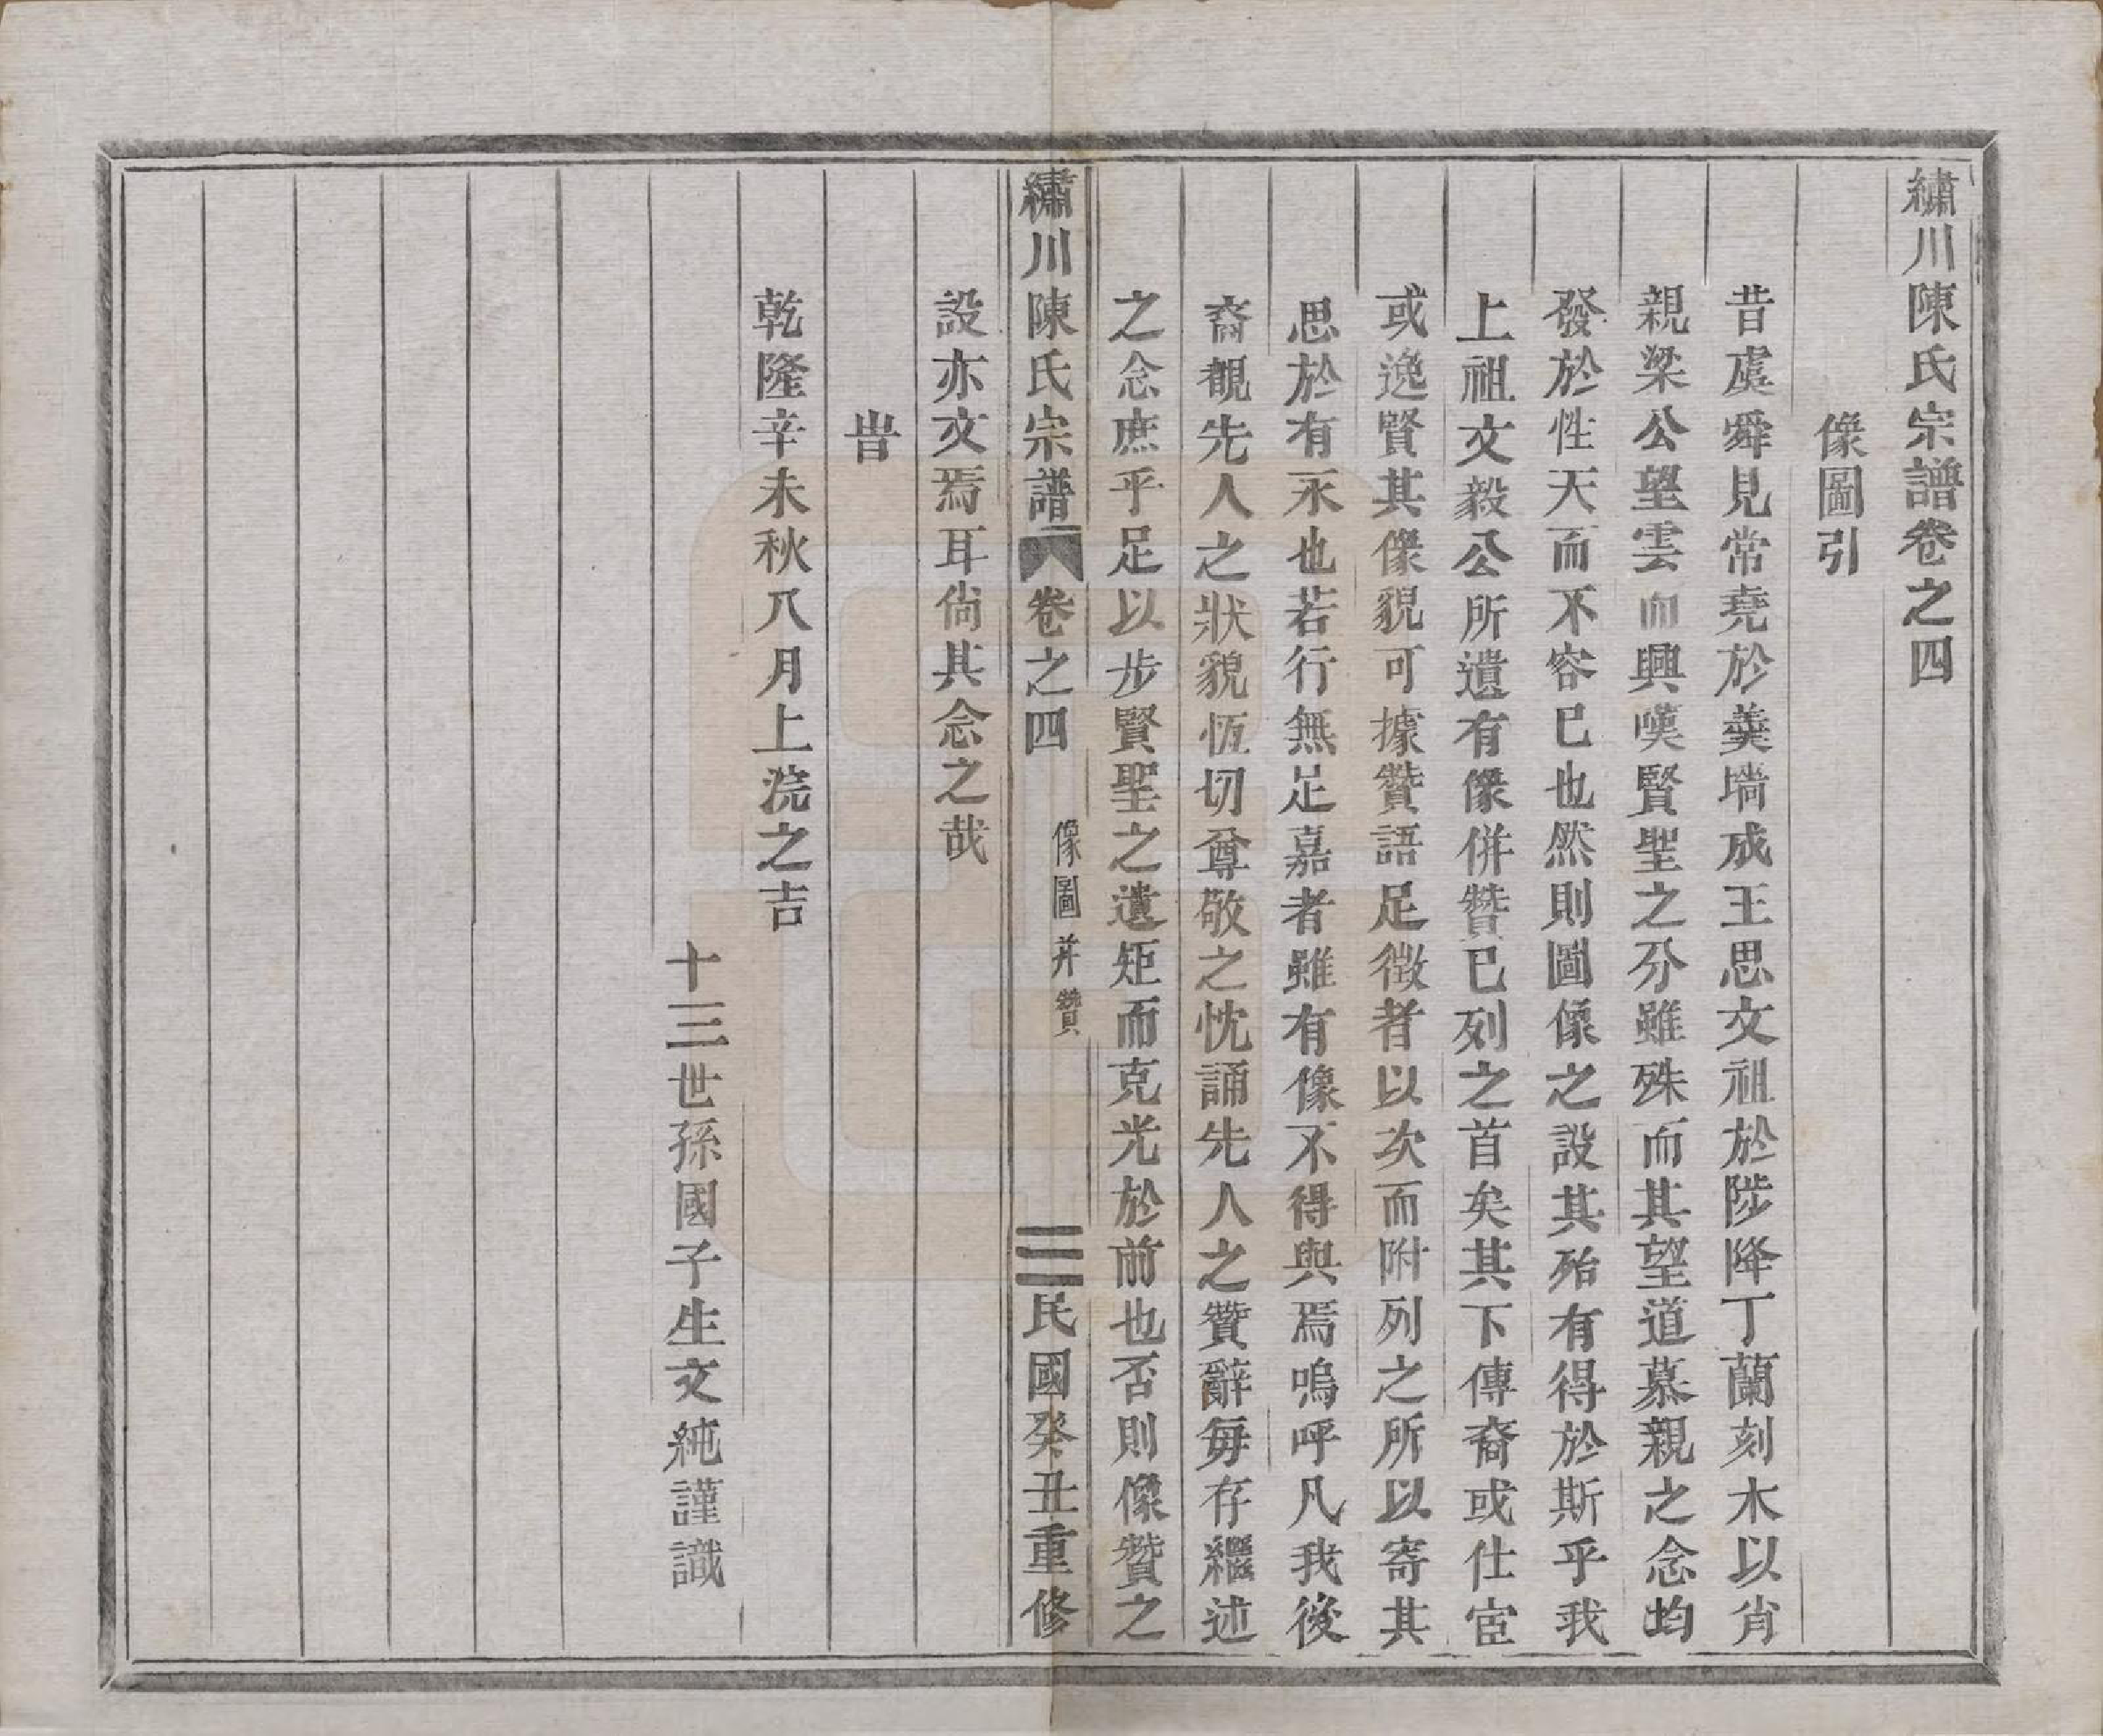 繡川陳氏宗譜卷之四
像圖引
昔虞舜見常堯於羮墻成王思文祖於陟降丁蘭刻木以肖
親梁公望雲而興嘆賢聖之分雖殊而其望道慕親之念均
發於性天而不容已也然則圖像之設其殆有得於斯乎我
上祖文毅公所遺有像併贊已列之首矣其下傳裔或仕宦
或逸賢其像貌可據贊語足徴者以次而附列之所以寄其
思於有永也若行無足嘉者雖有像不得與焉嗚呼凡我後
裔覩先人之狀貌恆切尊敬之忱誦先人之贊辭毎存繼述
之念庶乎足以步賢聖之遺矩而克光於前也否則像贊之
繡川陳氏宗譜 卷之四 像圖并贊 三 民國癸丑重修
設亦文焉耳倘其念之哉
旹
乾隆辛未秋八月上浣之吉
十三世孫國子生文純謹識